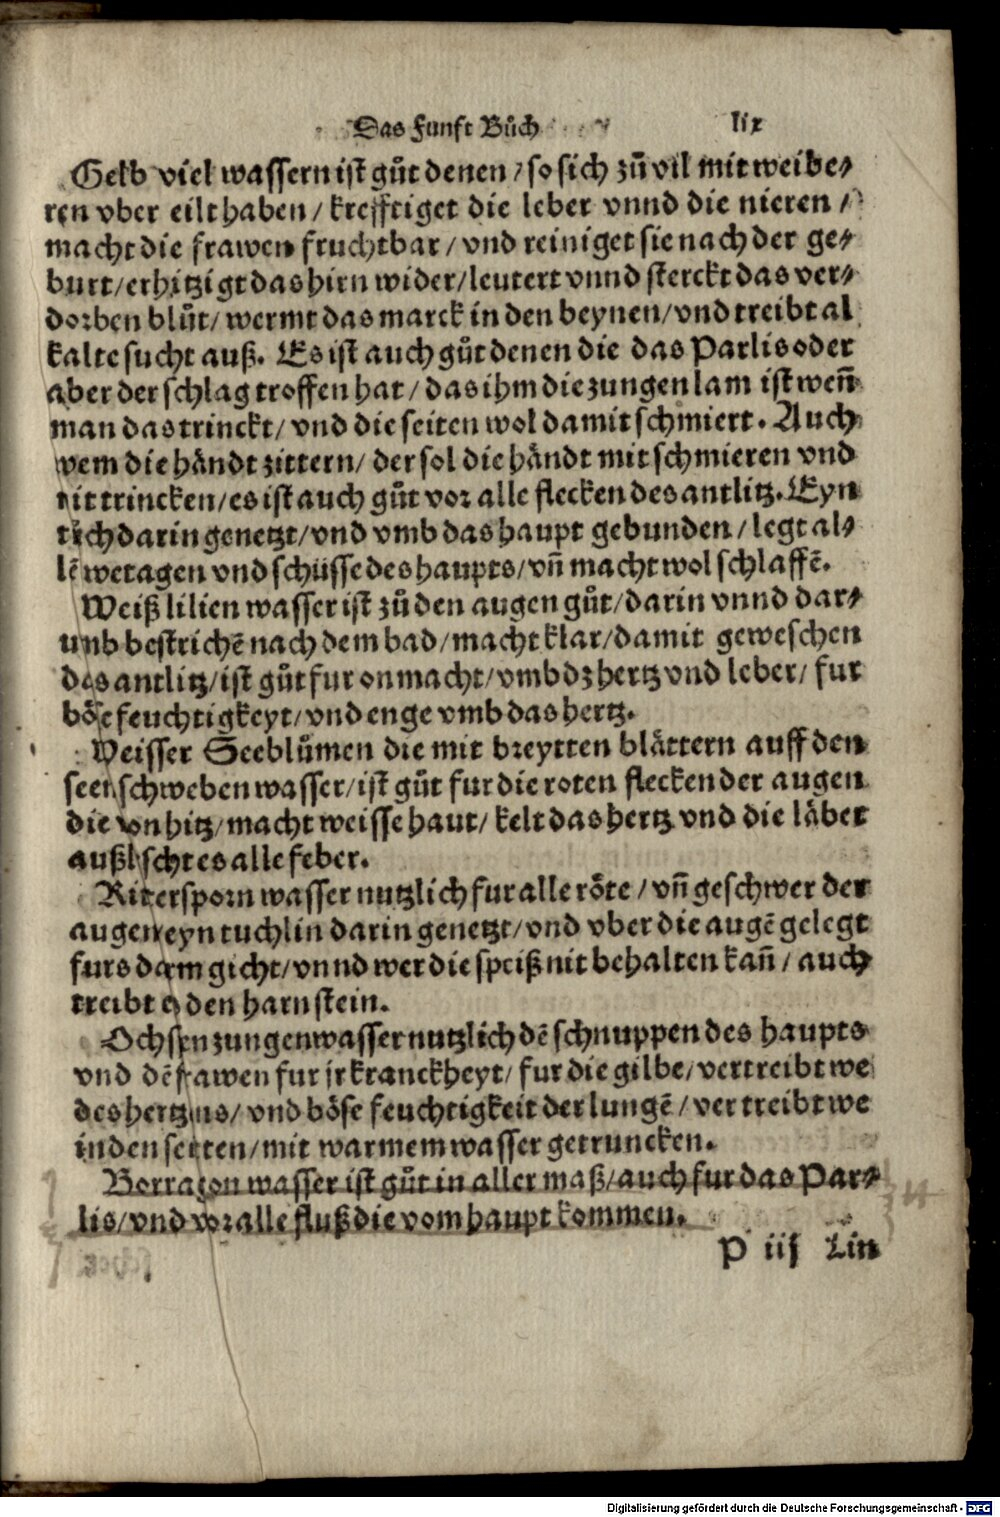 Das Funft Bůch lix
Gelb viel wassern ist gůt denen / so sich zů vil mit weibe⸗
ren vber eilt haben / krefftiget die leber vnnd die nieren /
macht die frawen fruchtbar / vnd reiniget sie nach der ge⸗
burt / erhitzigt das hirn wider / leutert vnnd sterckt das ver⸗
dorben blůt / wermt das marck in den beynen / vnd treibt al
kalte sucht auß. Es ist auch gůt denen die das Parlis oder
aber der schlag troffen hat / das ihm die zungen lam ist weñ
man das trinckt / vnd die seiten wol damit schmiert. Auch
wem die håndt zittern / der sol die håndt mit schmieren vnd
mit trincken / es ist auch gůt vor alle flecken des antlitz. Eyn
tůch darin genetzt / vnd vmb das haupt gebunden / legt al⸗
lē wetagen vnd schüsse des haupts / vñ macht wol schlaffē.
Weiß lilien wasser ist zů den augen gůt / darin vnnd dar⸗
umb bestrichē nach dem bad / macht klar / damit geweschen
das antlitz / ist gůt fur onmacht / vmb dz hertz vnd leber / fur
böse feuchtigkeyt / vnd enge vmb das hertz.
Weisser Seeblůmen die mit breytten blåttern auff den
seen schweben wasser / ist gůt fur die roten flecken der augen
die von hitz / macht weisse haut / kelt das hertz vnd die låber
außlischt es alle feber.
Ritersporn wasser nutzlich fur alle röte / vñ geschwer der
augen eyn tuchlin darin genetzt / vnd vber die augē gelegt
furs darm gicht / vnnd wer die speiß nit behalten kañ / auch
treibt es den harn stein.
Ochsen zungen wasser nutzlich dē schnuppen des haupts
vnd dē frawen fur jr kranckheyt / fur die gilbe / vertreibt we
des hertzens / vnd böse feuchtigkeit der lungē / vertreibt we
in den seitten / mit warmem wasser getruncken.
Borragon wasser ist gůt in aller maß / auch fur das Par⸗
lis / vnd vor alle fluß die vom haupt kommen.
P iij Lin
Digitalisierung gefördert durch die Deutsche Forschungsgemeinschaft - DFG